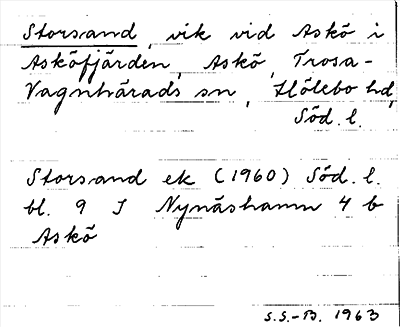 Storsand, vik vid Askö i
Asköfjärden, Askö, Trosa-
Vagnhärads sn, Hölebo hd,
Söd. l.
Storsand ek (1960) Söd. l.
bl. 9 I Nynäshamn 4 b
Askö
S.S.-B. 1963